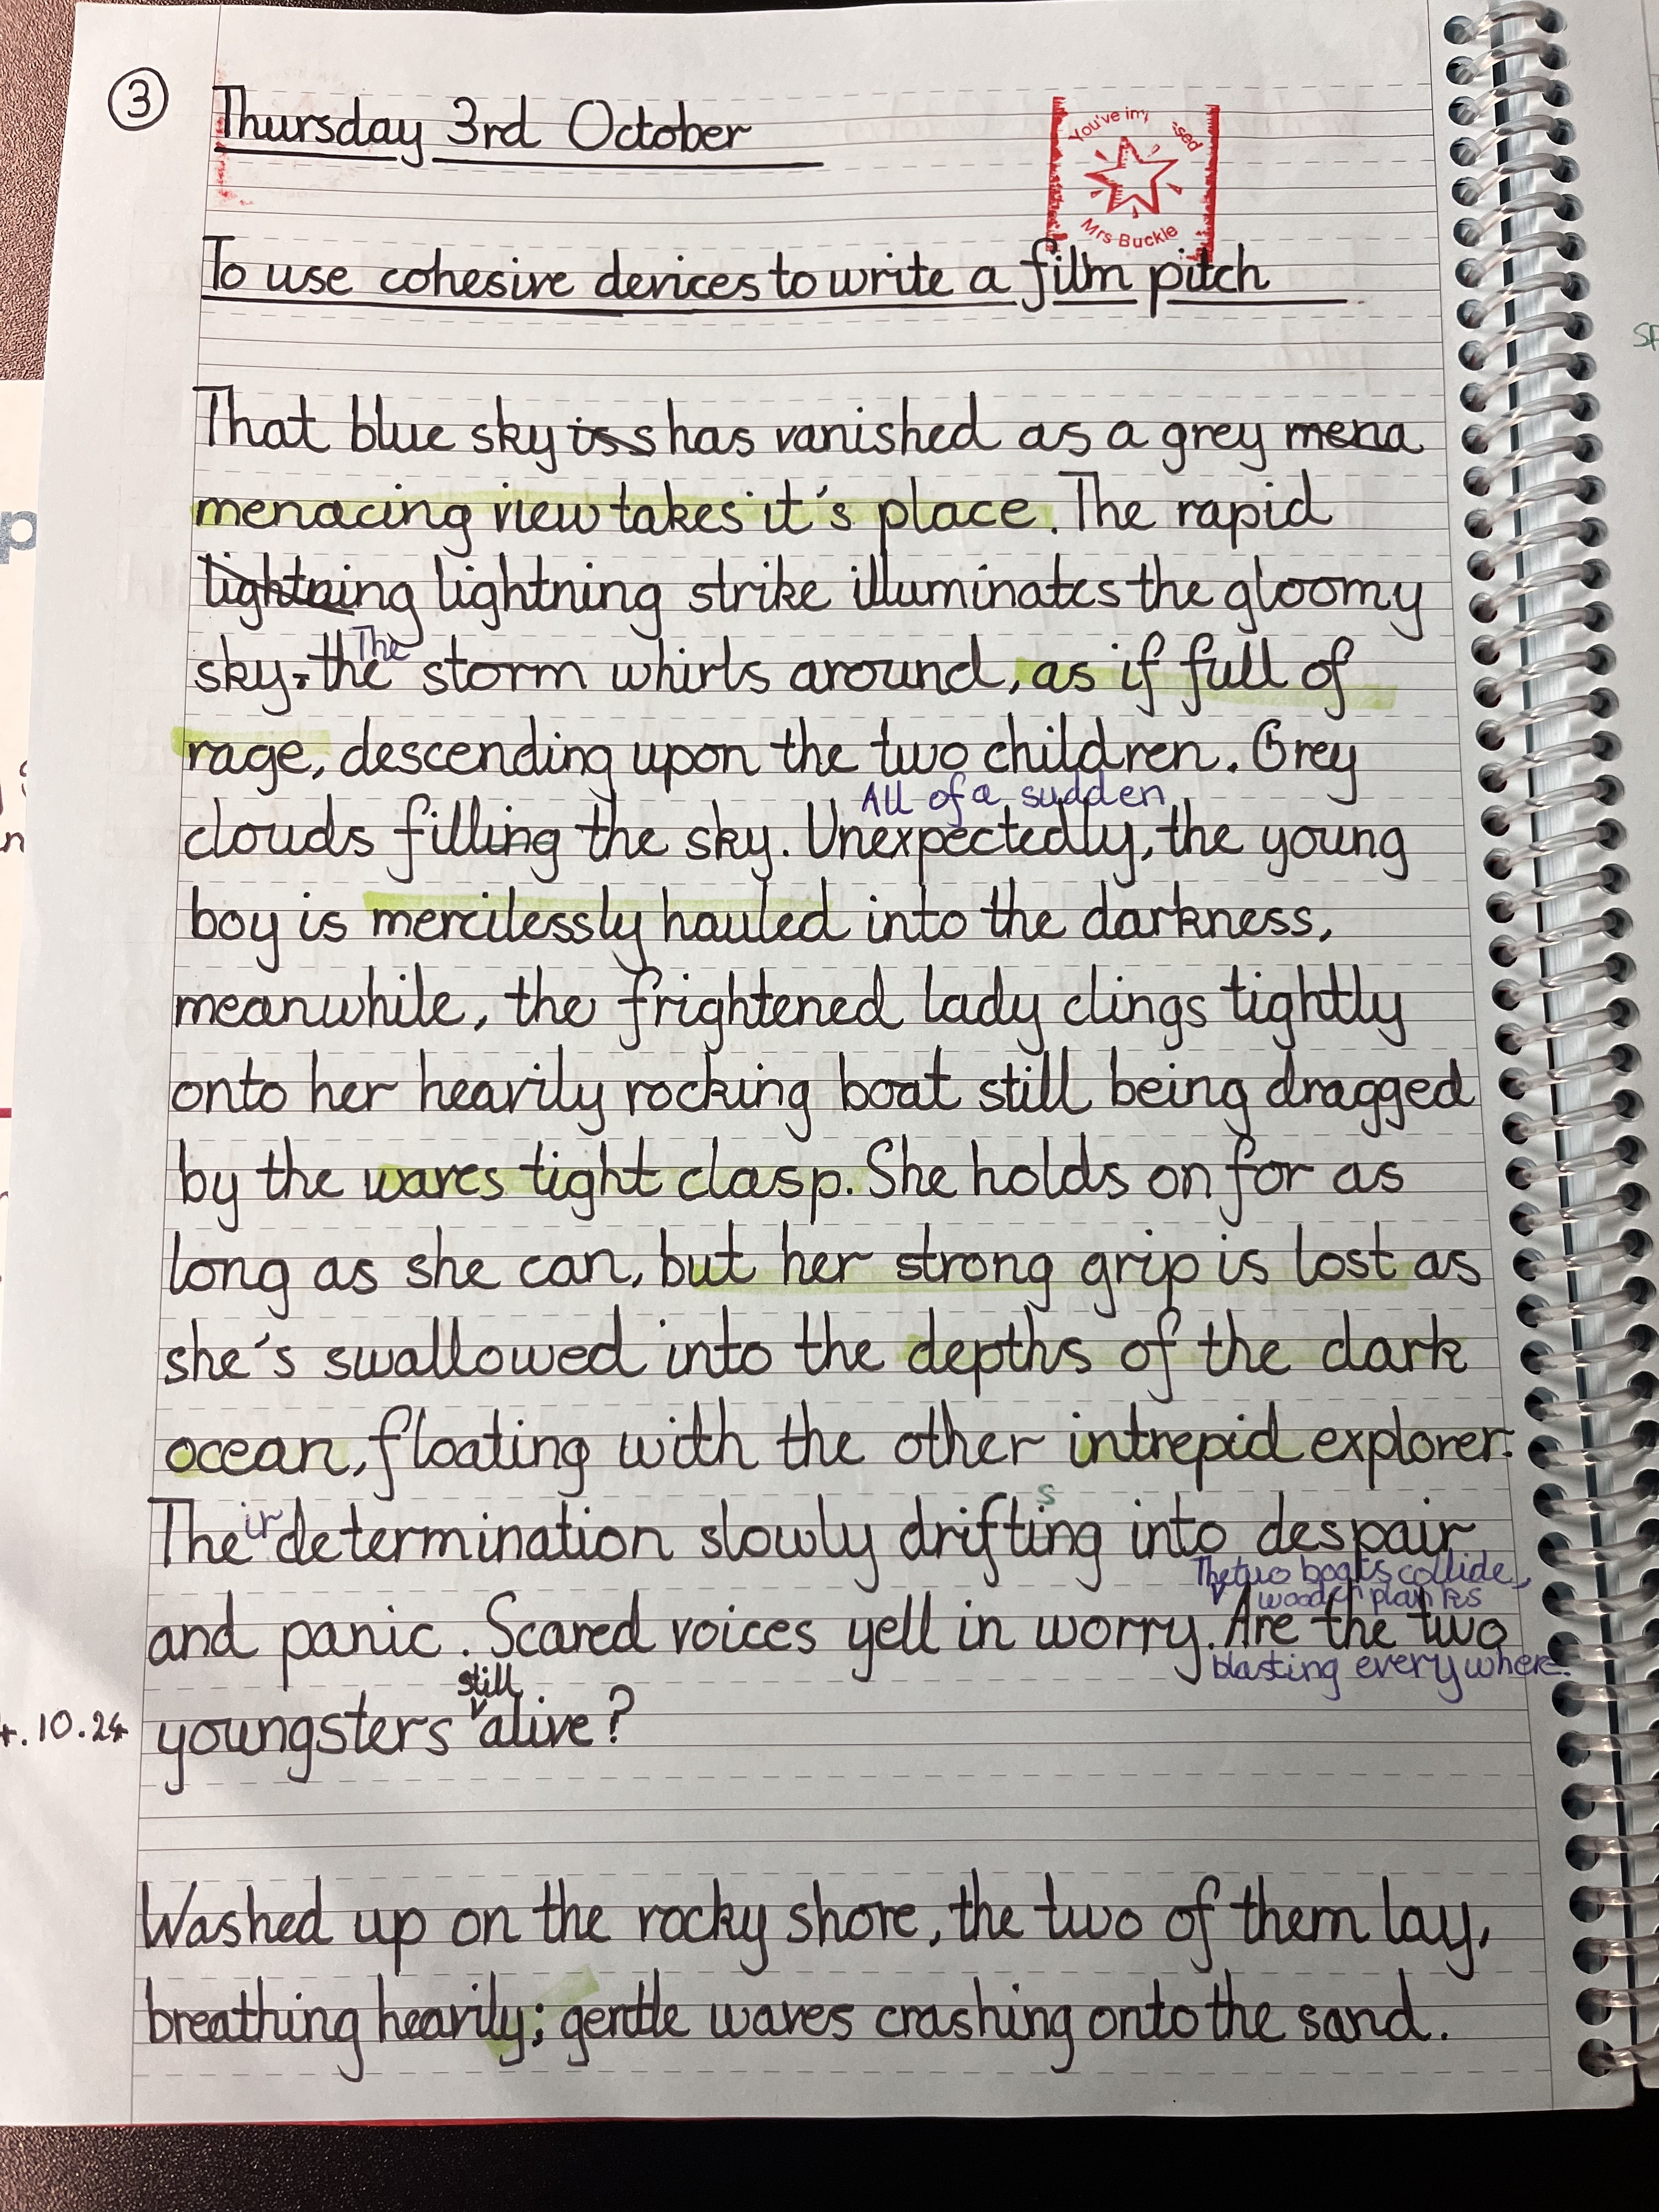 3
Thursday 3rd October
You've im sed
Mrs Buckle
To use cohesive devices to write a film pitch
That blue sky iss has vanished as a grey mena
menacing view takes it's place. The rapid
lightning lightning strike illuminates the gloomy
The
sky, the storm whirls around, as if full of
rage, descending upon the two children. Grey
All of a sudden
clouds filling the sky. Unexpectedly, the young
boy is mercilessly hauled into the darkness,
meanwhile, the frightened lady clings tightly
onto her heavily rocking boat still being dragged
by the waves tight clasp. She holds on for as
long as she can, but her strong grip is lost as
she's swallowed into the depths of the dark
ocean, floating with the other intrepid explorer.
s
Their determination slowly drifting into despair
The two boats collide,
wooden planks
and panic. Scared voices yell in worry. Are the two
blasting everywhere.
still
.10.24 youngsters alive?
Washed up on the rocky shore, the two of them lay,
breathing heavily; gentle waves crashing onto the sand.